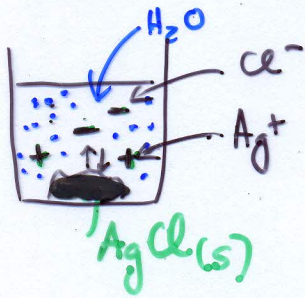 H₂O
Cl⁻
Ag⁺
AgCl(s)